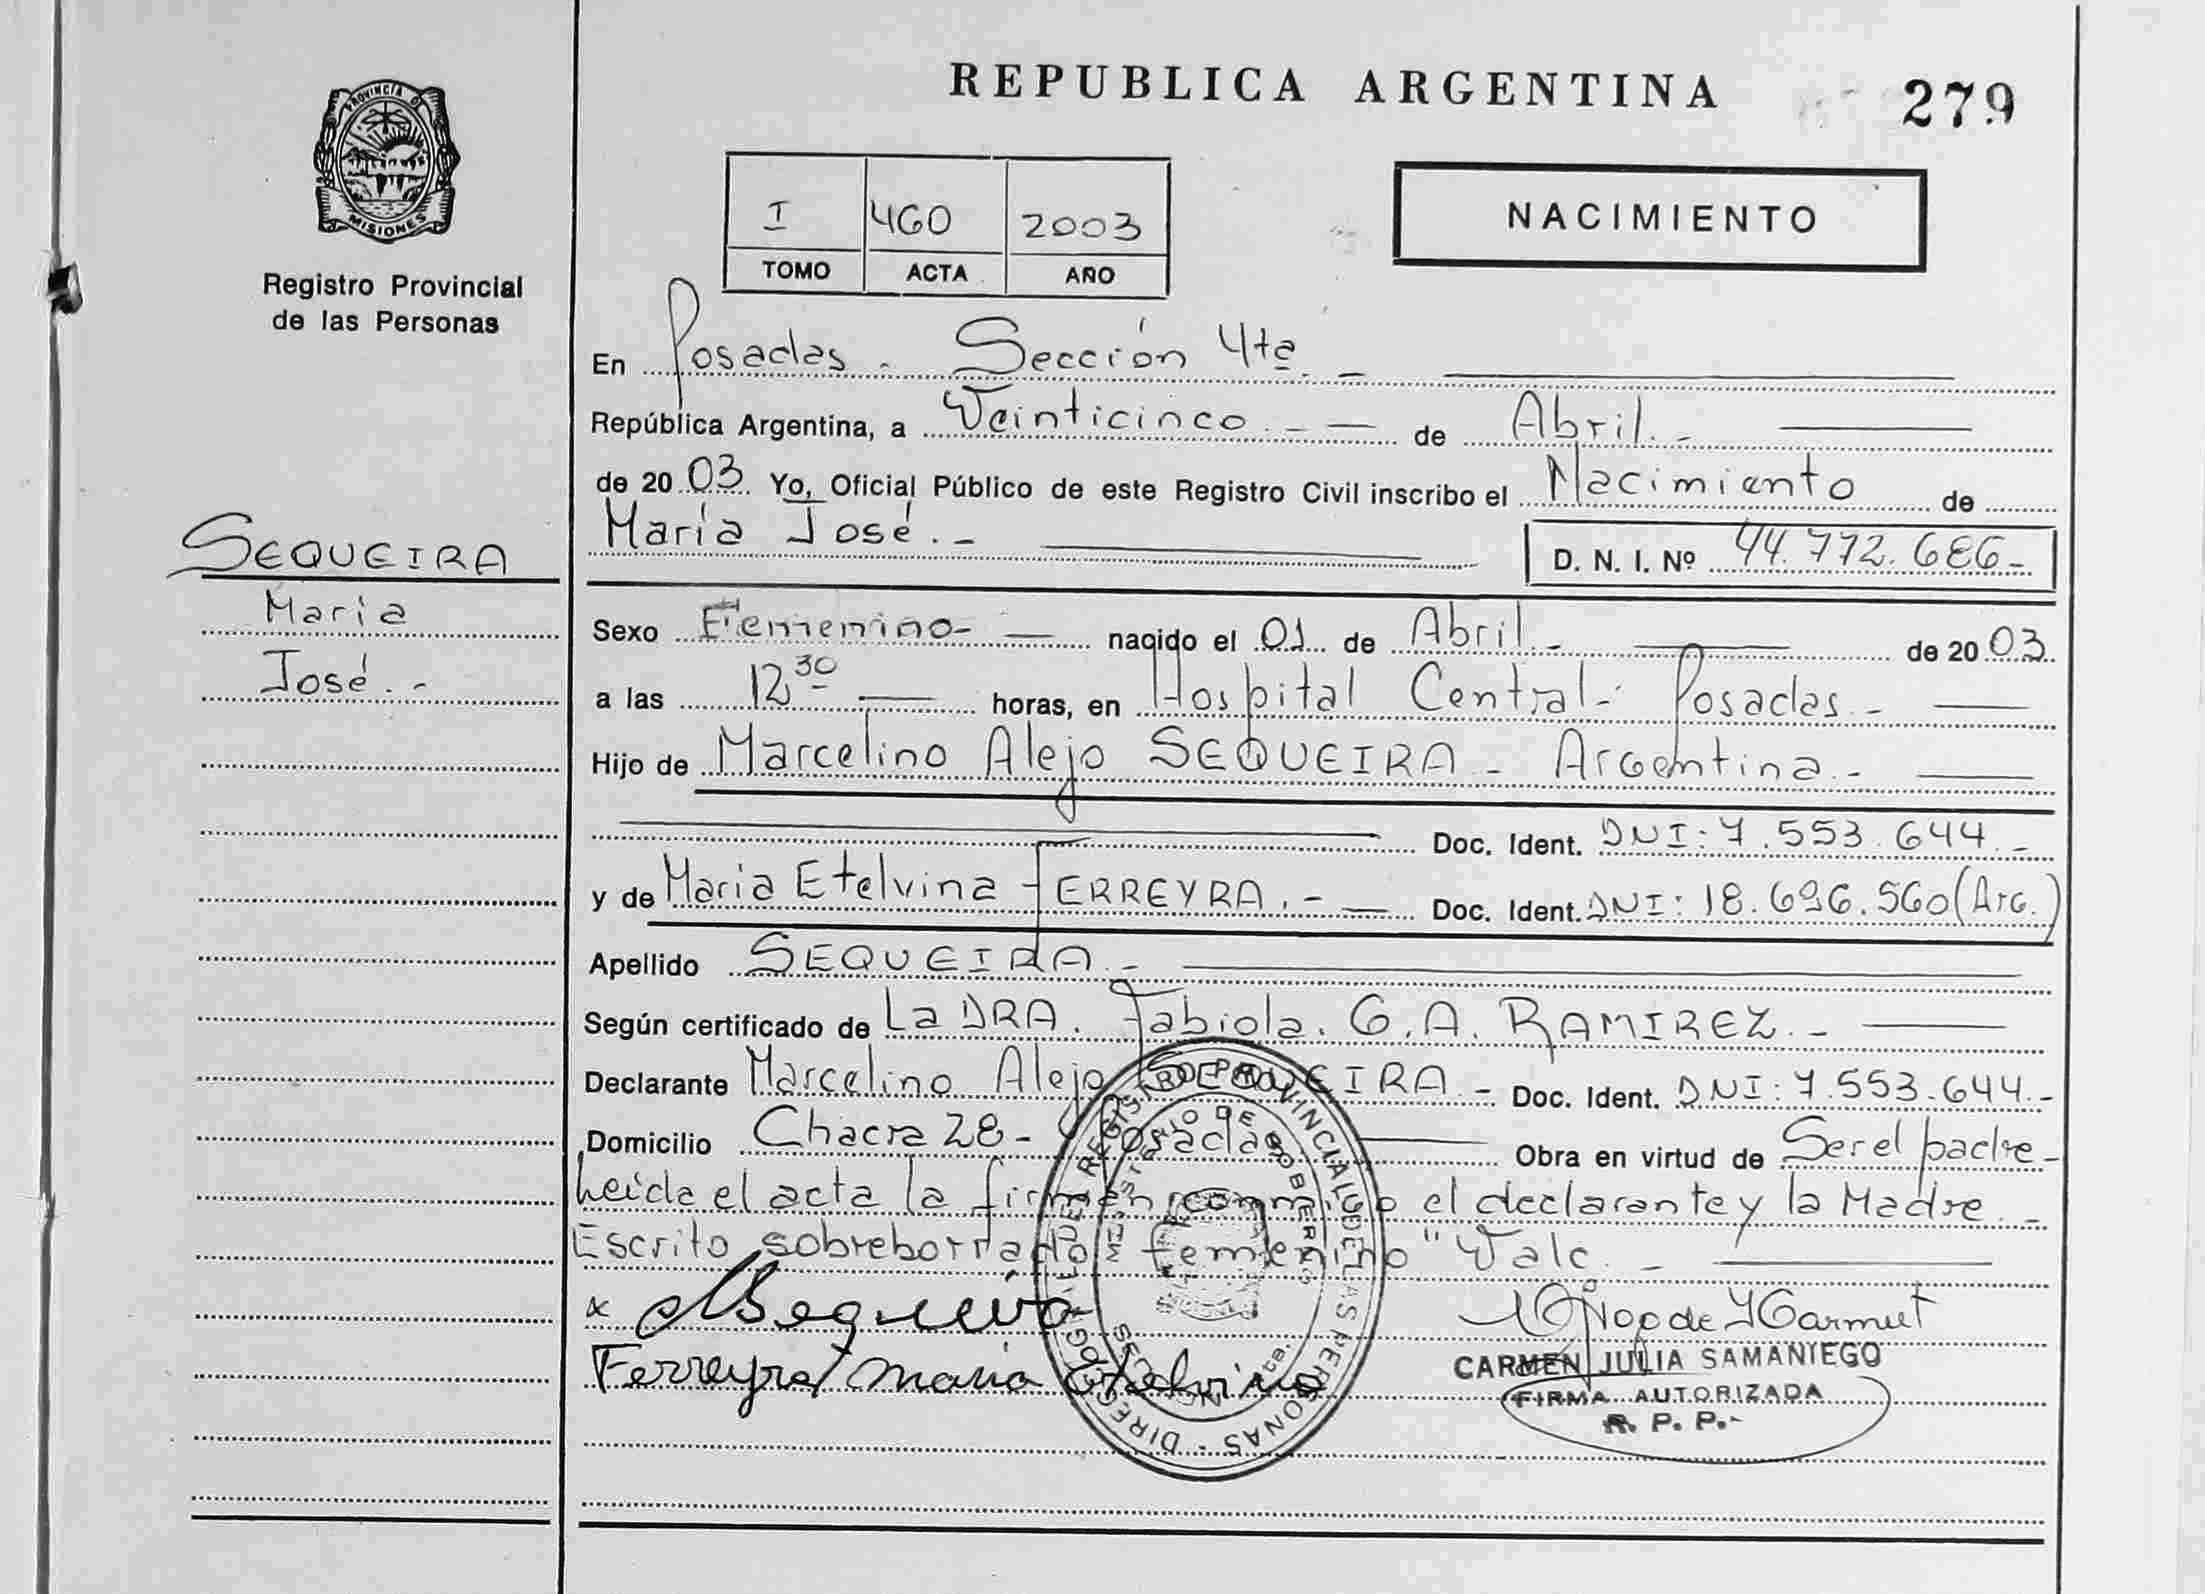 REPUBLICA ARGENTINA
279
PROVINCIA DE
MISIONES
Registro Provincial
de las Personas
I 460 2003
TOMO ACTA AÑO
NACIMIENTO
En Posadas - Sección 4ta. -
República Argentina, a Veinticinco. - de Abril. -
de 2003 Yo, Oficial Público de este Registro Civil inscribo el Nacimiento de
María José. -
D. N. I. Nº 44.772.686-
SEQUEIRA
María
José. -
Sexo Femenino- nacido el 01 de Abril. - de 2003
a las 12 30 horas, en Hospital Central - Posadas. -
Hijo de Marcelino Alejo SEQUEIRA - Argentina. -
Doc. Ident. DNI: 7.553.644. -
y de Maria Etelvina FERREYRA. - Doc. Ident. DNI: 18.696.560 (Arg.)
Apellido SEQUEIRA. -
Según certificado de La DRA. Fabiola. G. A. RAMIREZ. -
Declarante Marcelino Alejo SEQUEIRA. - Doc. Ident. DNI: 7.553.644. -
Domicilio Chacra 28 - Posadas Obra en virtud de Ser el padre -
Leída el acta la firman conmigo el declarante y la Madre. -
Escrito sobreborrado "femenino" Vale. -
x Sequeira
Ferreyra Maria Etelvina
CARMEN JULIA SAMANIEGO
FIRMA AUTORIZADA
R. P. P.-
DIRECCION GRAL. DEL REGISTRO PROVINCIAL DE LAS PERSONAS
MINISTERIO DE GOBIERNO
MISIONES